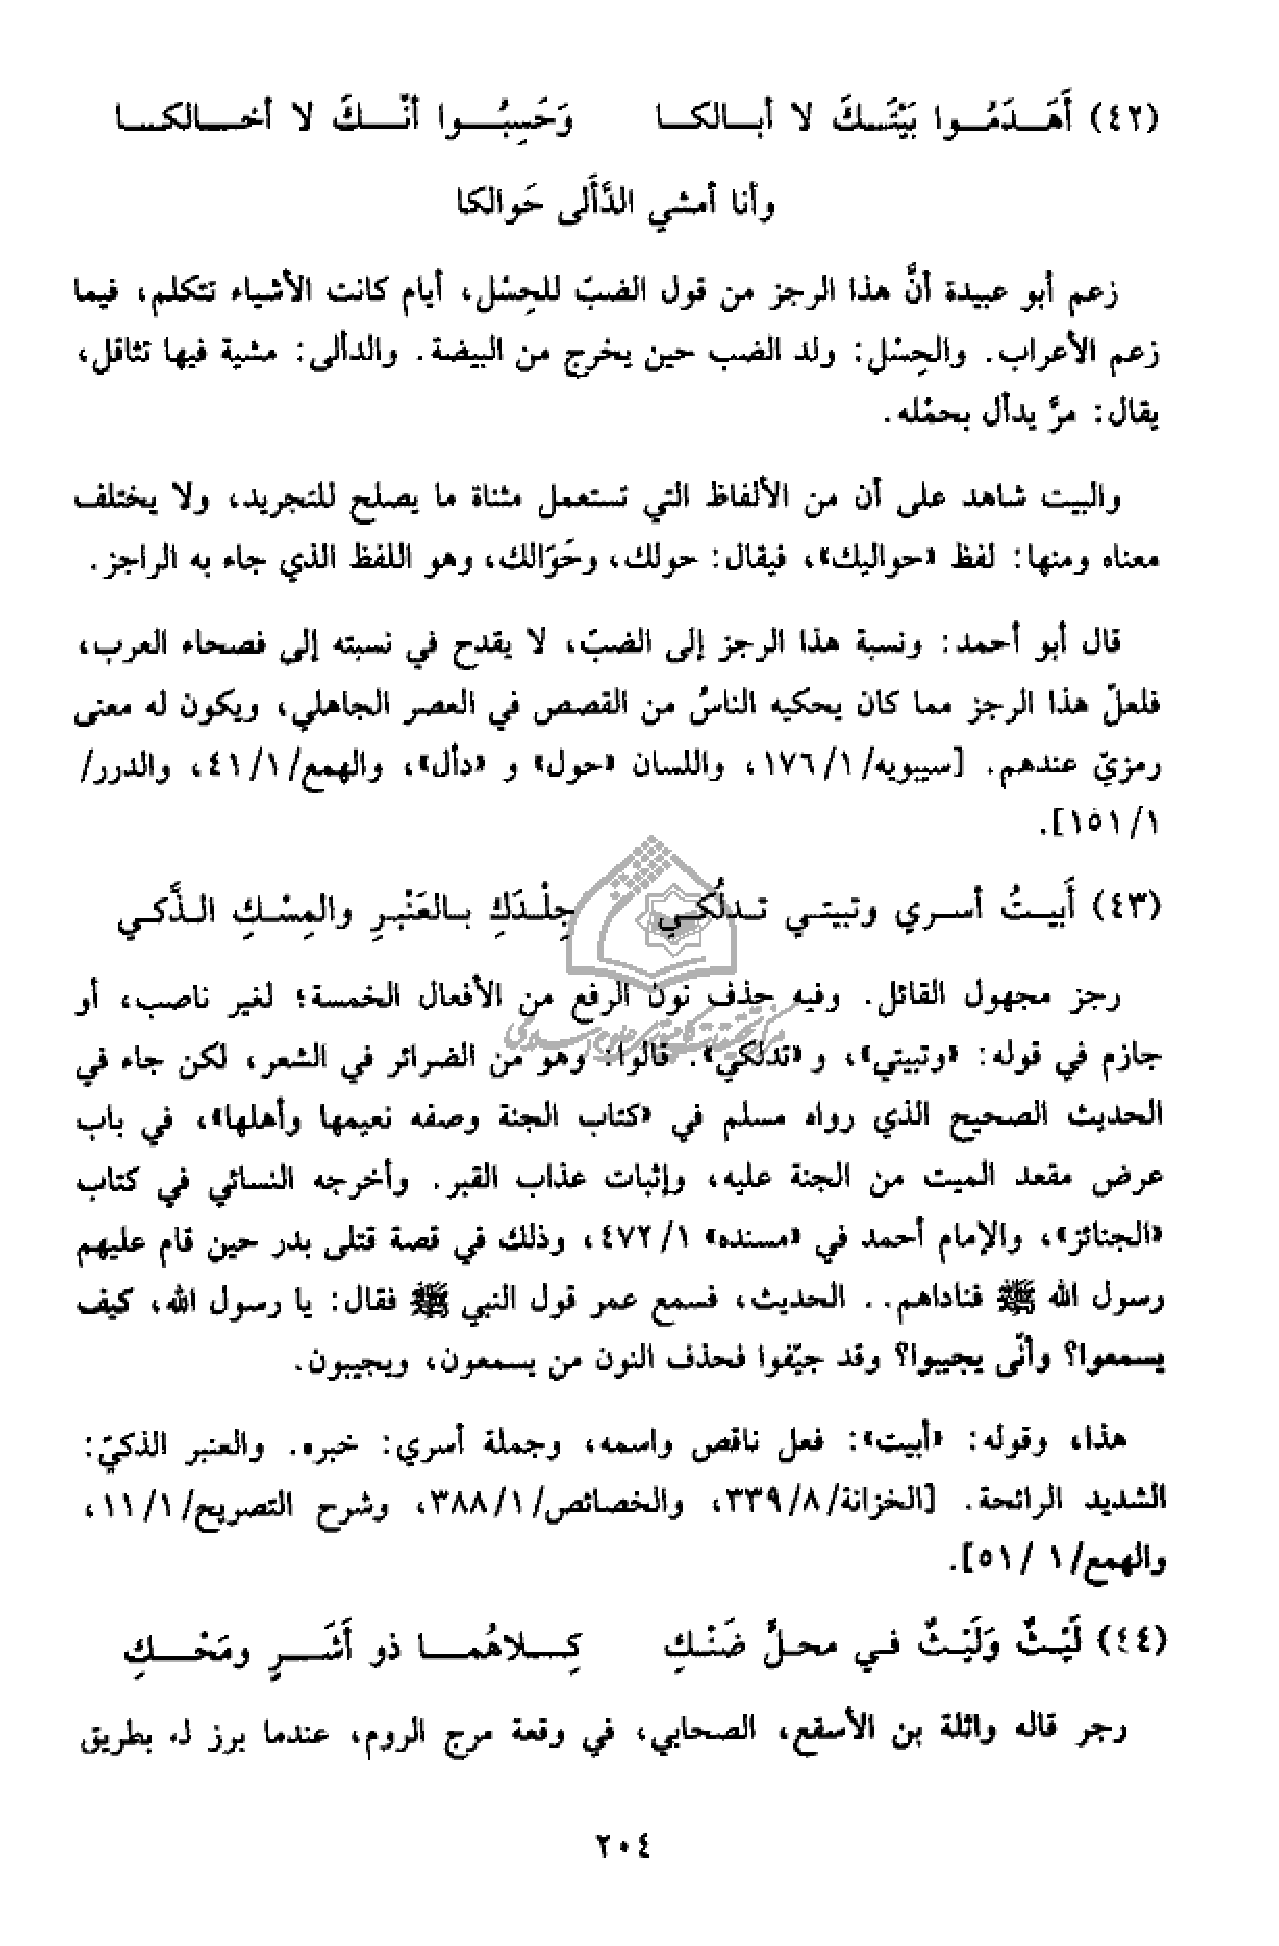 (٤٢) أَهَدَمُوا بَيْتَكَ لا أبالكا وَحَسِبُوا أنّكَ لا أخالكا
وأنا أمشي الدَّأَلى حَوالكا
زعم أبو عبيدة أنَّ هذا الرجز من قول الضبّ للحِسْل، أيام كانت الأشياء تتكلم، فيما
زعم الأعراب. والحِسْل: ولد الضب حين يخرج من البيضة. والدألى: مشية فيها تثاقل،
يقال: مرَّ يدأل بحمْله.
والبيت شاهد على أن من الألفاظ التي تستعمل مثناة ما يصلح للتجريد، ولا يختلف
معناه ومنها: لفظ «حواليك»، فيقال: حولك، وحَوَالك، وهو اللفظ الذي جاء به الراجز.
قال أبو أحمد: ونسبة هذا الرجز إلى الضبّ، لا يقدح في نسبته إلى فصحاء العرب،
فلعلّ هذا الرجز مما كان يحكيه الناسُ من القصص في العصر الجاهلي، ويكون له معنى
رمزيّ عندهم. [سيبويه/١/١٧٦، واللسان «حول» و «دأل»، والهمع/١/٤١، والدرر/
١/١٥١].
(٤٣) أَبيتُ أسري وتبيتي تدلُكي جِلْدَكِ بالعَنْبرِ والمِسْكِ الذَّكي
رجز مجهول القائل. وفيه حذف نون الرفع من الأفعال الخمسة؛ لغير ناصب، أو
جازم في قوله: «وتبيتي»، و «تدلكي». قالوا: وهو من الضرائر في الشعر، لكن جاء في
الحديث الصحيح الذي رواه مسلم في «كتاب الجنة وصفه نعيمها وأهلها»، في باب
عرض مقعد الميت من الجنة عليه، وإثبات عذاب القبر. وأخرجه النسائي في كتاب
«الجنائز»، والإمام أحمد في «مسنده» ١/٤٧٢، وذلك في قصة قتلى بدر حين قام عليهم
رسول الله ﷺ فناداهم.. الحديث، فسمع عمر قول النبي ﷺ فقال: يا رسول الله، كيف
يسمعوا؟ وأنّى يجيبوا؟ وقد جيّفوا فحذف النون من يسمعون، ويجيبون.
هذا، وقوله: «أبيت»: فعل ناقص واسمه، وجملة أسري: خبره. والعنبر الذكيّ:
الشديد الرائحة. [الخزانة/٨/٣٣٩، والخصائص/١/٣٨٨، وشرح التصريح/١/١١،
والهمع/١ /٥١].
(٤٤) لَيْثٌ وَلَيْثٌ في محلَّ ضَنْكِ كِلاهُما ذو أَشَرٍ ومَحْكِ
رجز قاله واثلة بن الأسقع، الصحابي، في وقعة مرج الروم، عندما برز له بطريق
٢٠٤